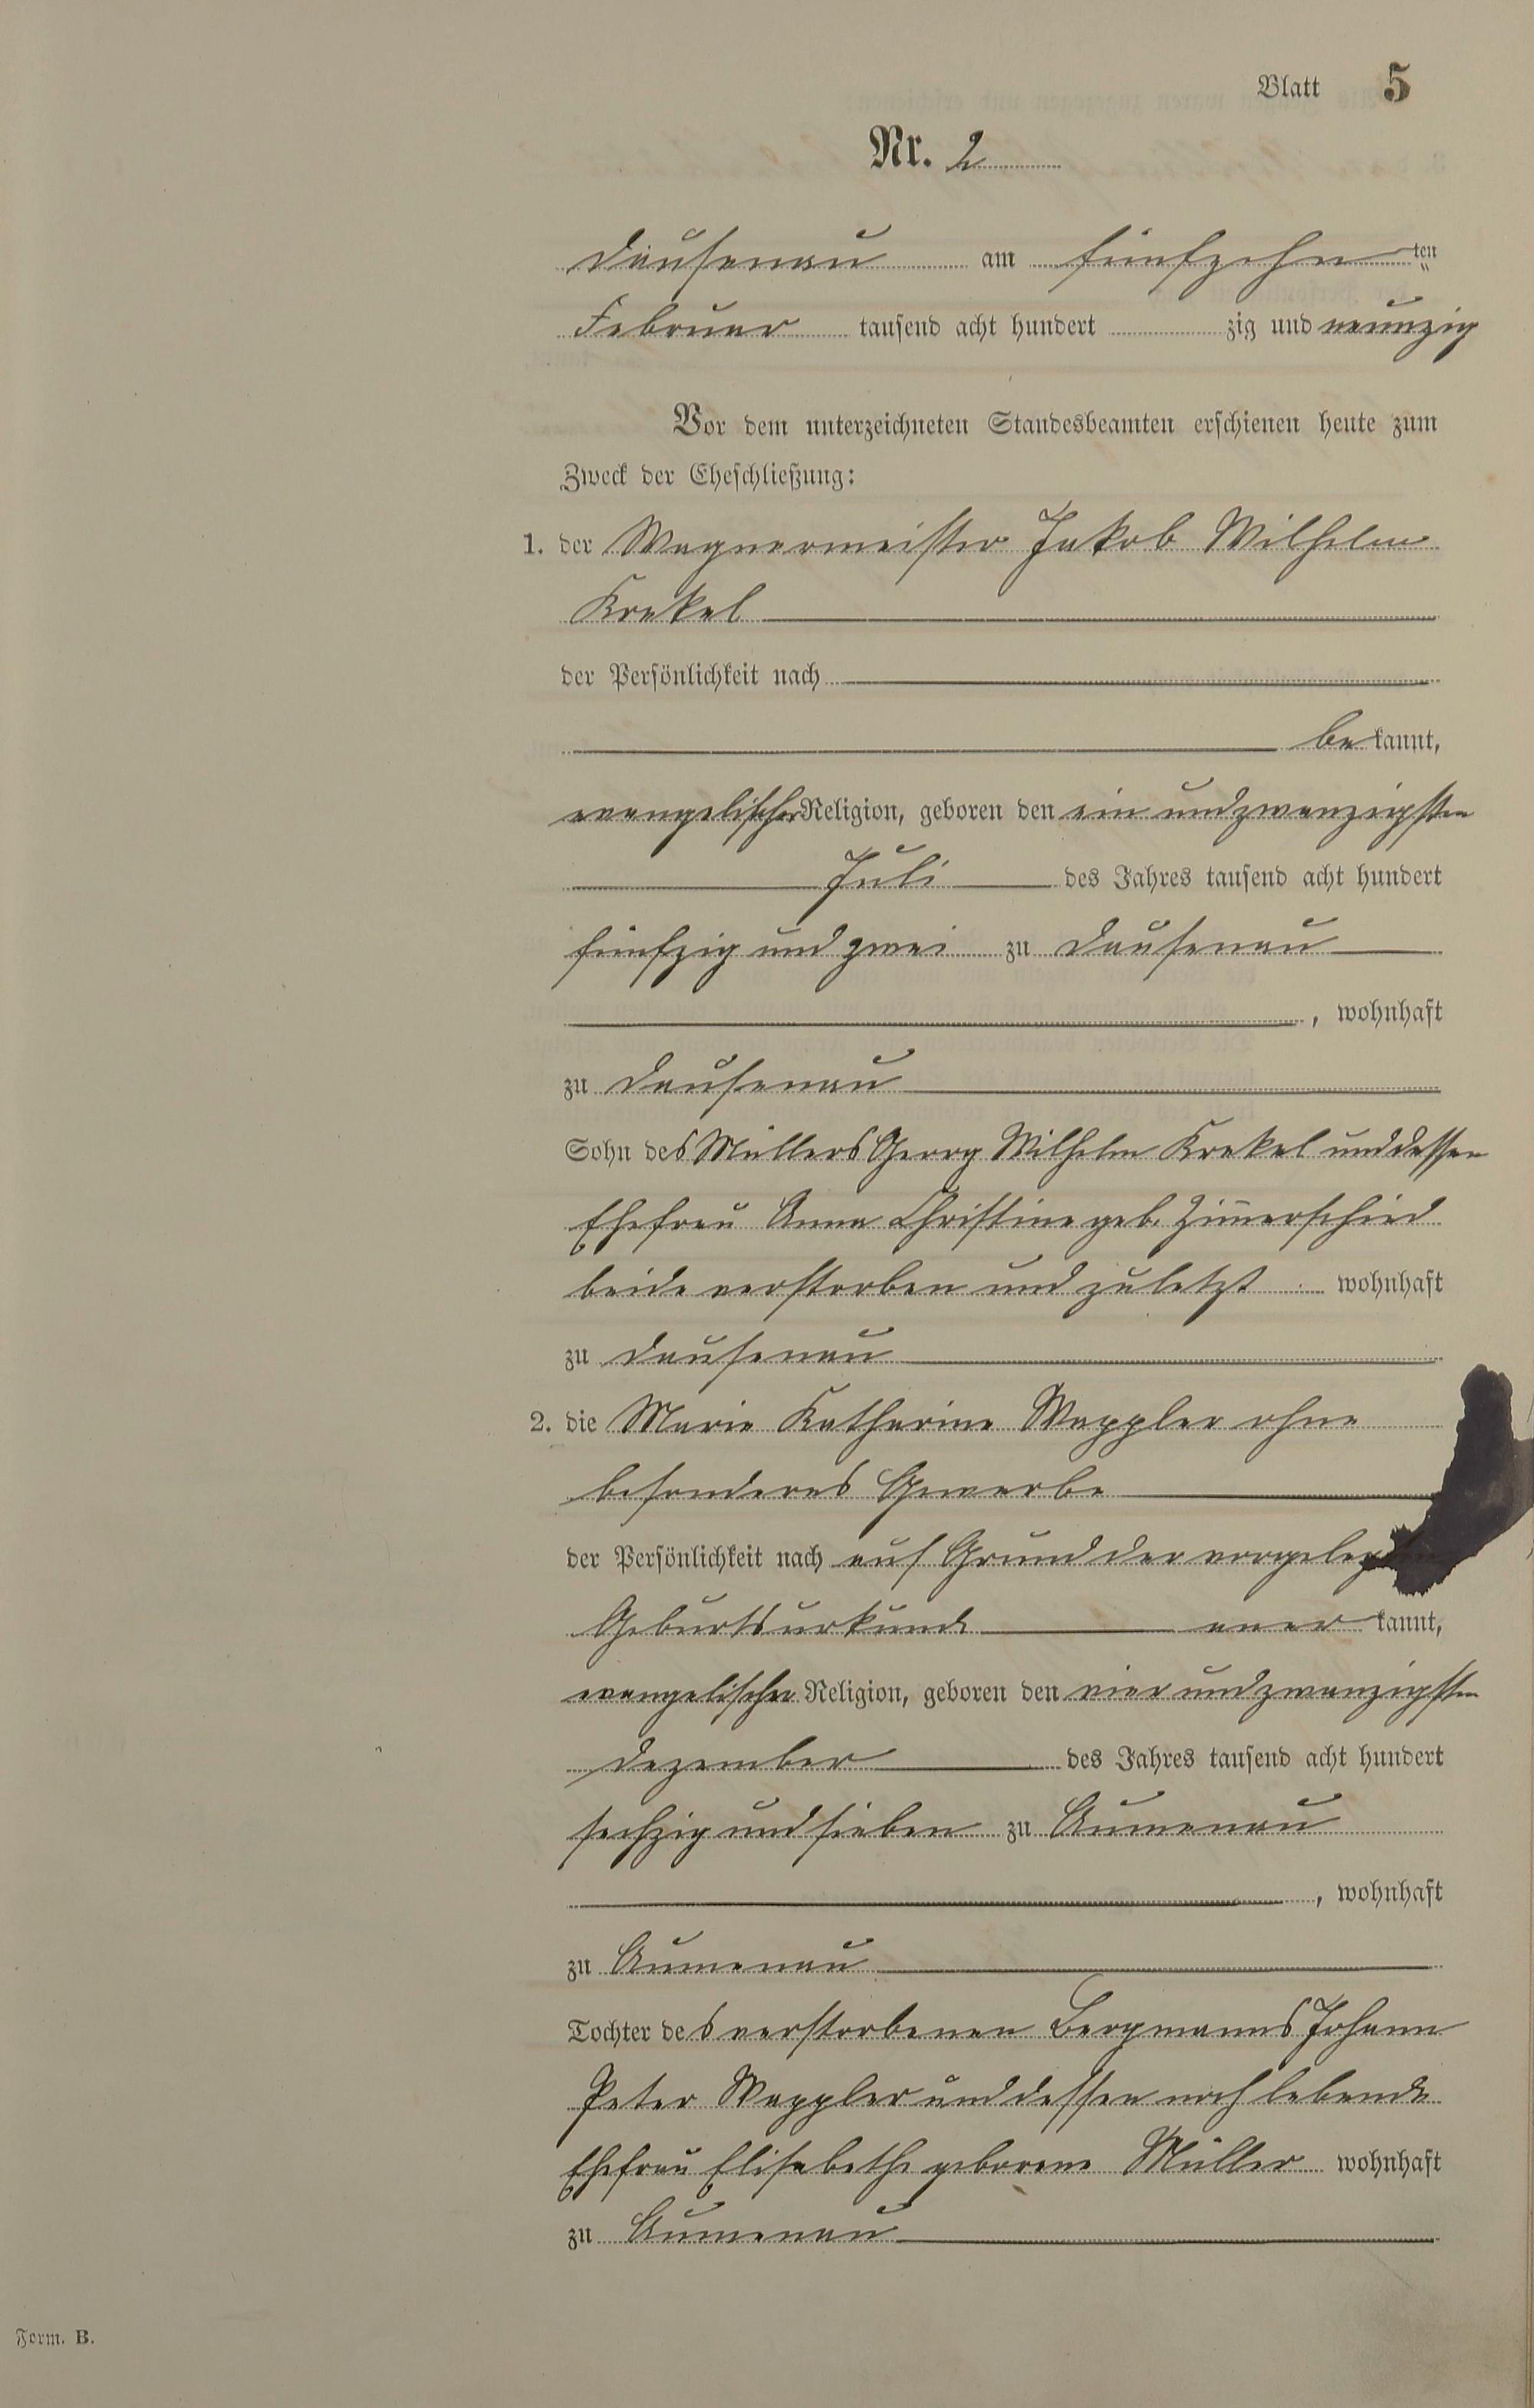 Blatt 5
Nr. 2
Dausenau am fünfzehn ten
Februar tausend acht hundert zig und neunzig
Vor dem unterzeichneten Standesbeamten erschienen heute zum
Zweck der Eheschließung:
1. der Wagnermeister Jakob Wilhelm
Krekel
der Persönlichkeit nach
bekannt,
evangelischer Religion, geboren den ein und zwanzigsten
Juli des Jahres tausend acht hundert
fünfzig und zwei zu Dausenau
, wohnhaft
zu Dausenau
Sohn des Müllers Georg Wilhelm Krekel und dessen
Ehefrau Anna Christine geb. Zim̄erschied
beide verstorben und zuletzt wohnhaft
zu Dausenau
2. die Marie Katharine Weppler ohne
besonderes Gewerbe
der Persönlichkeit nach auf Grund der vorgelegten
Geburtsurkunde anerkannt,
evangelischer Religion, geboren den vier und zwanzigsten
Dezember des Jahres tausend acht hundert
sechzig und sieben zu Aumenau
, wohnhaft
zu Aumenau
Tochter des verstorbenen Bergmanns Johann
Peter Weppler und dessen noch lebende
Ehefrau Elisabethe geborene Müller wohnhaft
zu Aumenau
Form. B.